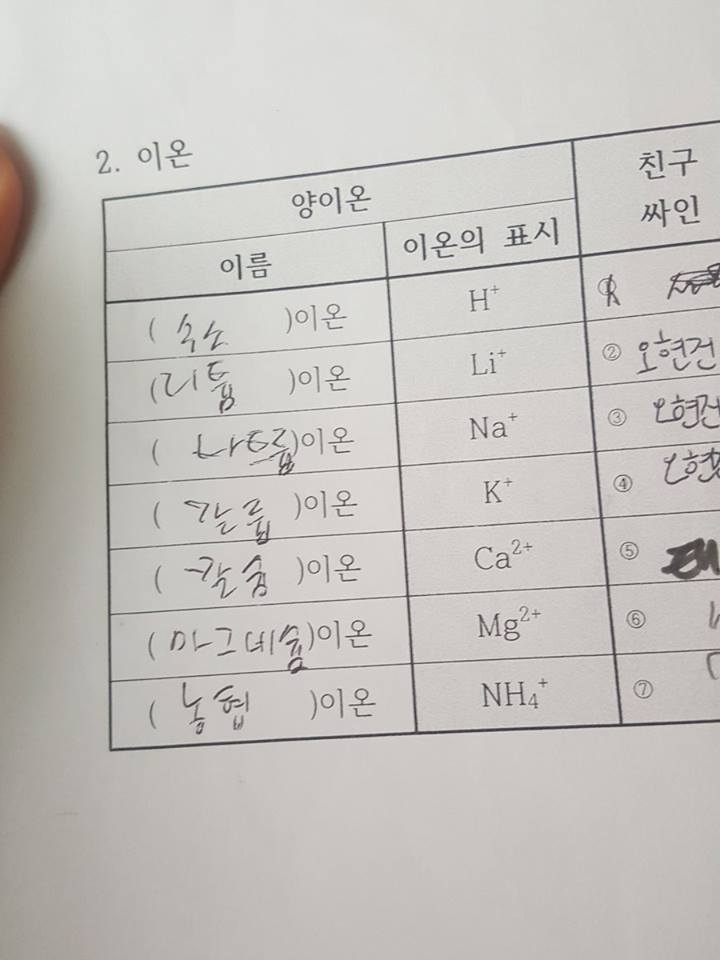 2. 이온
양이온
친구
싸인
이름
이온의 표시
( 수소 )이온 H⁺
(리튬 )이온 Li⁺ ② 오현건
( 나트륨)이온 Na⁺ ③ 오현건
( 칼륨 )이온 K⁺ ④ 오현
( 칼슘 )이온 Ca²⁺ ⑤
(마그네슘)이온 Mg²⁺ ⑥
( 농협 )이온 NH₄⁺ ⑦